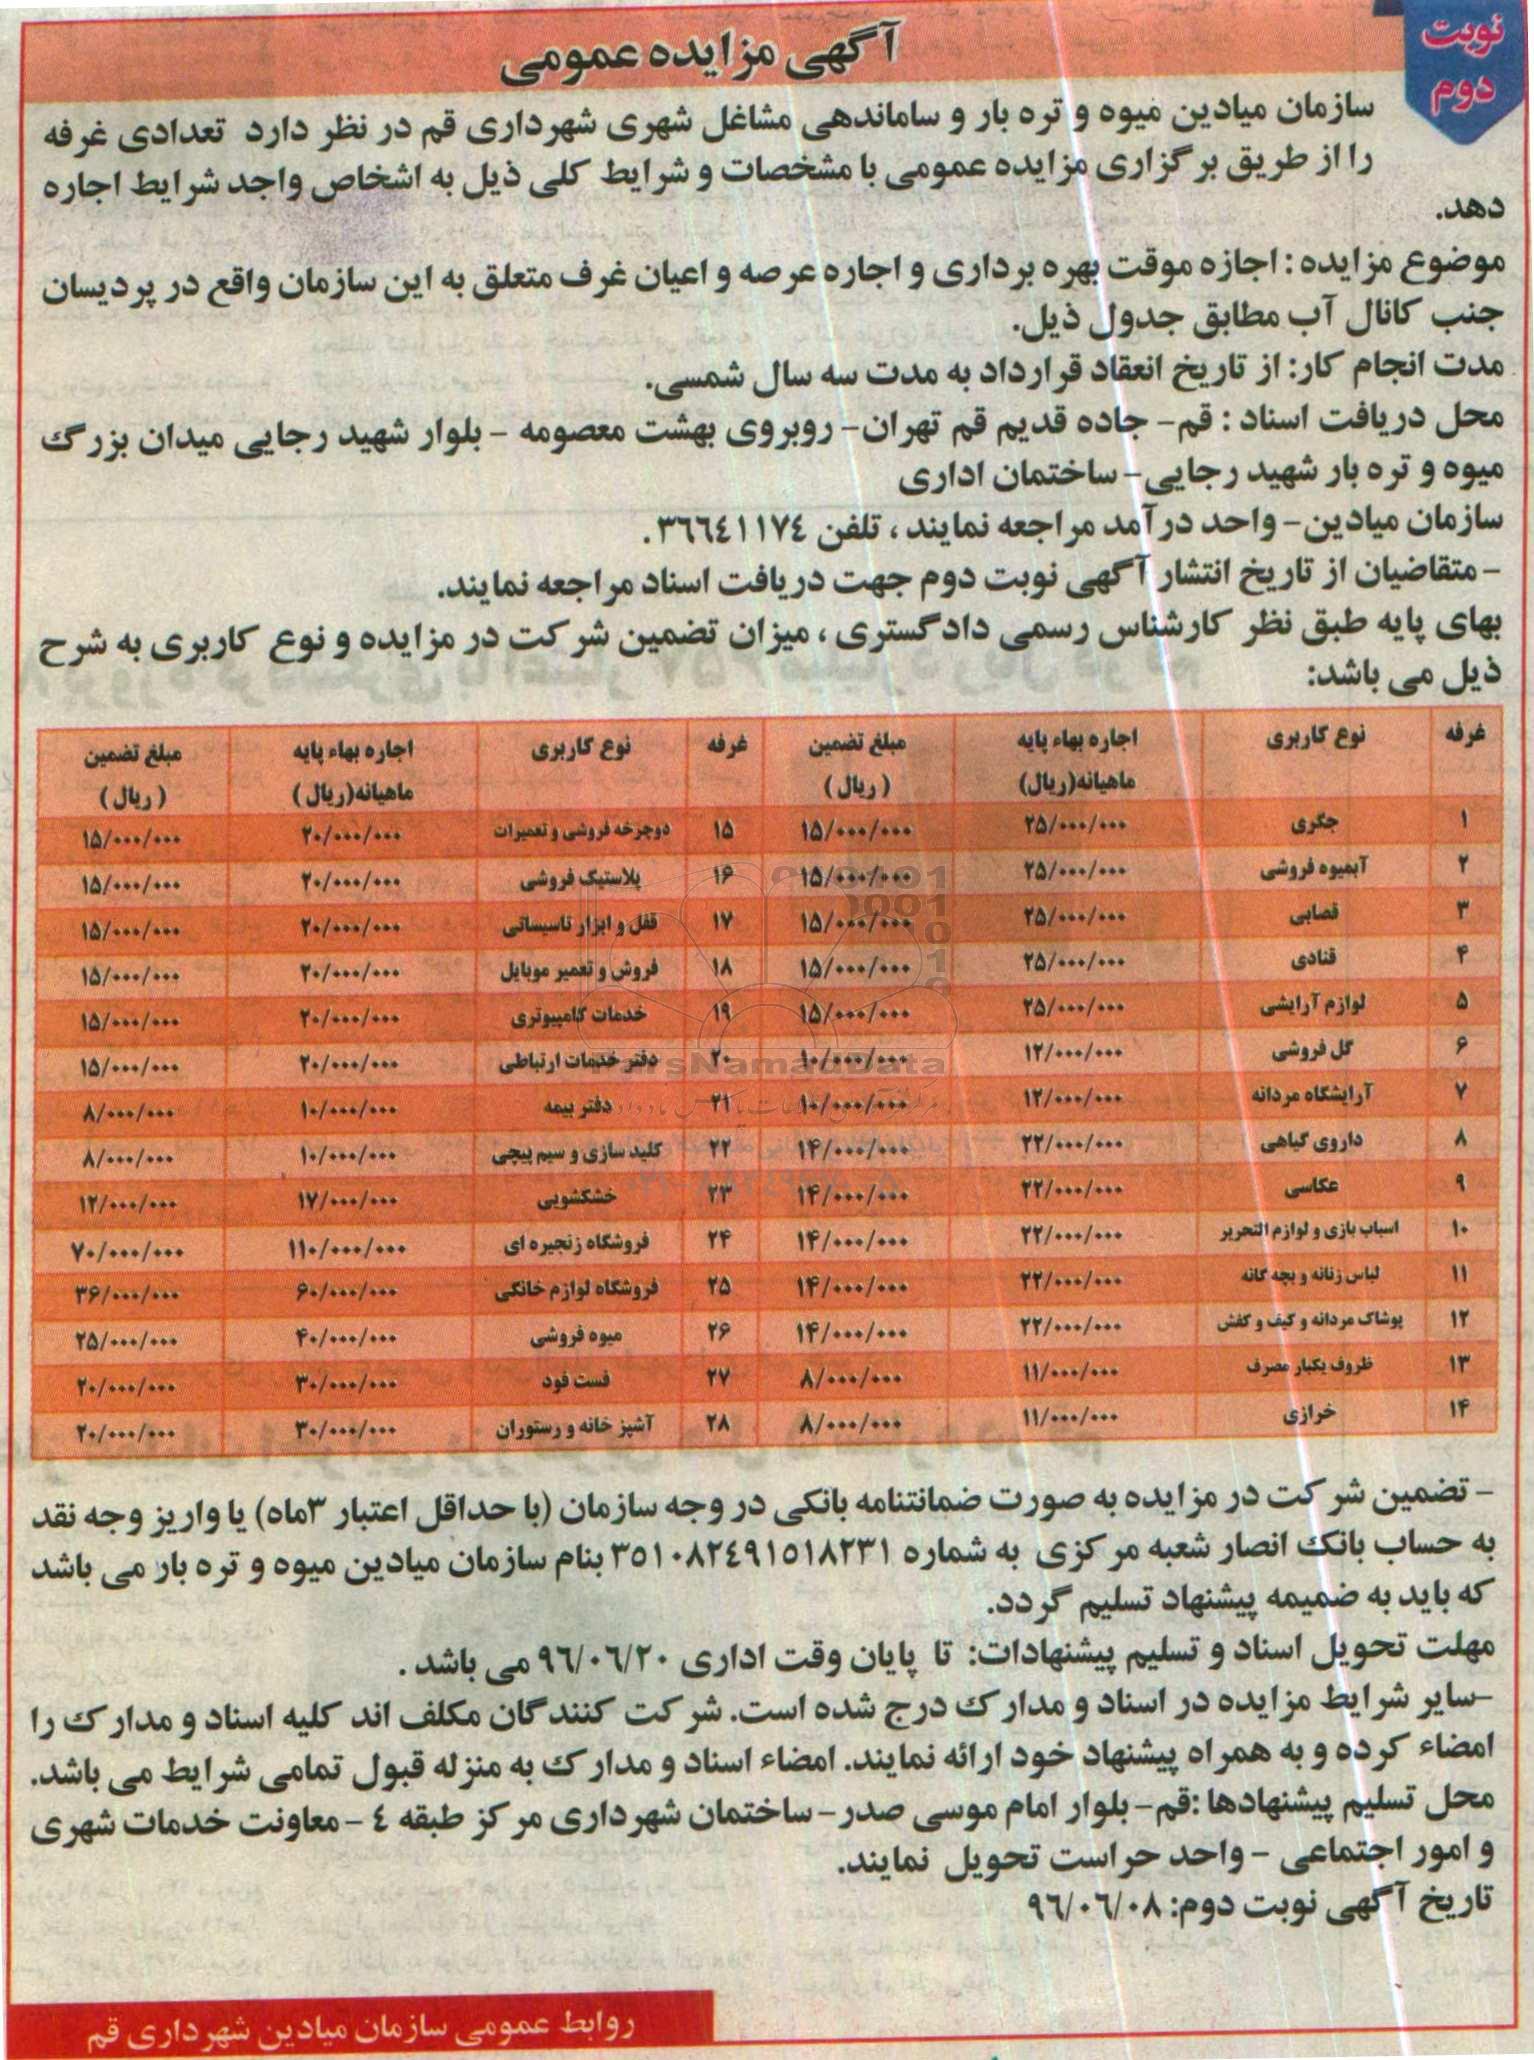 نوبت
دوم
آگهی مزایده عمومی
سازمان میادین میوه و تره بار و ساماندهی مشاغل شهری شهرداری قم در نظر دارد تعدادی غرفه
را از طریق برگزاری مزایده عمومی با مشخصات و شرایط کلی ذیل به اشخاص واجد شرایط اجاره
دهد.
موضوع مزایده : اجازه موقت بهره برداری و اجاره عرصه و اعیان غرف متعلق به این سازمان واقع در پردیسان
جنب کانال آب مطابق جدول ذیل.
مدت انجام کار: از تاریخ انعقاد قرارداد به مدت سه سال شمسی.
محل دریافت اسناد : قم- جاده قدیم قم تهران- روبروی بهشت معصومه - بلوار شهید رجایی میدان بزرگ
میوه و تره بار شهید رجایی- ساختمان اداری
سازمان میادین- واحد درآمد مراجعه نمایند ، تلفن ۳۶۶۴۱۱۷۴ .
- متقاضیان از تاریخ انتشار آگهی نوبت دوم جهت دریافت اسناد مراجعه نمایند.
بهای پایه طبق نظر کارشناس رسمی دادگستری ، میزان تضمین شرکت در مزایده و نوع کاربری به شرح
ذیل می باشد:
غرفه نوع کاربری اجاره بهاء پایه مبلغ تضمین غرفه نوع کاربری اجاره بهاء پایه مبلغ تضمین
ماهیانه(ریال) (ریال) ماهیانه(ریال) (ریال)
۱ جگری ۲۵/۰۰۰/۰۰۰ ۱۵/۰۰۰/۰۰۰ ۱۵ دوچرخه فروشی و تعمیرات ۲۰/۰۰۰/۰۰۰ ۱۵/۰۰۰/۰۰۰
۲ آبمیوه فروشی ۲۵/۰۰۰/۰۰۰ ۱۵/۰۰۰/۰۰۰ ۱۶ پلاستیک فروشی ۲۰/۰۰۰/۰۰۰ ۱۵/۰۰۰/۰۰۰
۳ قصابی ۲۵/۰۰۰/۰۰۰ ۱۵/۰۰۰/۰۰۰ ۱۷ قفل و ابزار تاسیساتی ۲۰/۰۰۰/۰۰۰ ۱۵/۰۰۰/۰۰۰
۴ قنادی ۲۵/۰۰۰/۰۰۰ ۱۵/۰۰۰/۰۰۰ ۱۸ فروش و تعمیر موبایل ۲۰/۰۰۰/۰۰۰ ۱۵/۰۰۰/۰۰۰
۵ لوازم آرایشی ۲۵/۰۰۰/۰۰۰ ۱۵/۰۰۰/۰۰۰ ۱۹ خدمات کامپیوتری ۲۰/۰۰۰/۰۰۰ ۱۵/۰۰۰/۰۰۰
۶ گل فروشی ۱۲/۰۰۰/۰۰۰ ۱۰/۰۰۰/۰۰۰ ۲۰ دفتر خدمات ارتباطی ۲۰/۰۰۰/۰۰۰ ۱۵/۰۰۰/۰۰۰
۷ آرایشگاه مردانه ۱۲/۰۰۰/۰۰۰ ۱۰/۰۰۰/۰۰۰ ۲۱ دفتر بیمه ۱۰/۰۰۰/۰۰۰ ۸/۰۰۰/۰۰۰
۸ داروی گیاهی ۲۲/۰۰۰/۰۰۰ ۱۴/۰۰۰/۰۰۰ ۲۲ کلید سازی و سیم پیچی ۱۰/۰۰۰/۰۰۰ ۸/۰۰۰/۰۰۰
۹ عکاسی ۲۲/۰۰۰/۰۰۰ ۱۴/۰۰۰/۰۰۰ ۲۳ خشکشویی ۱۷/۰۰۰/۰۰۰ ۱۲/۰۰۰/۰۰۰
۱۰ اسباب بازی و لوازم التحریر ۲۲/۰۰۰/۰۰۰ ۱۴/۰۰۰/۰۰۰ ۲۴ فروشگاه زنجیره ای ۱۱۰/۰۰۰/۰۰۰ ۷۰/۰۰۰/۰۰۰
۱۱ لباس زنانه و بچه گانه ۲۲/۰۰۰/۰۰۰ ۱۴/۰۰۰/۰۰۰ ۲۵ فروشگاه لوازم خانگی ۶۰/۰۰۰/۰۰۰ ۳۶/۰۰۰/۰۰۰
۱۲ پوشاک مردانه و کیف و کفش ۲۲/۰۰۰/۰۰۰ ۱۴/۰۰۰/۰۰۰ ۲۶ میوه فروشی ۴۰/۰۰۰/۰۰۰ ۲۵/۰۰۰/۰۰۰
۱۳ ظروف یکبار مصرف ۱۱/۰۰۰/۰۰۰ ۸/۰۰۰/۰۰۰ ۲۷ فست فود ۳۰/۰۰۰/۰۰۰ ۲۰/۰۰۰/۰۰۰
۱۴ خرازی ۱۱/۰۰۰/۰۰۰ ۸/۰۰۰/۰۰۰ ۲۸ آشپز خانه و رستوران ۳۰/۰۰۰/۰۰۰ ۲۰/۰۰۰/۰۰۰
ParsNamadData
- تضمین شرکت در مزایده به صورت ضمانتنامه بانکی در وجه سازمان (با حداقل اعتبار ۳ماه) یا واریز وجه نقد
به حساب بانک انصار شعبه مرکزی به شماره ۳۵۱۰۸۲۴۹۱۵۱۸۲۳۱ بنام سازمان میادین میوه و تره بار می باشد
که باید به ضمیمه پیشنهاد تسلیم گردد.
مهلت تحویل اسناد و تسلیم پیشنهادات: تا پایان وقت اداری ۹۶/۰۶/۲۰ می باشد .
-سایر شرایط مزایده در اسناد و مدارک درج شده است. شرکت کنندگان مکلف اند کلیه اسناد و مدارک را
امضاء کرده و به همراه پیشنهاد خود ارائه نمایند. امضاء اسناد و مدارک به منزله قبول تمامی شرایط می باشد.
محل تسلیم پیشنهادها :قم- بلوار امام موسی صدر- ساختمان شهرداری مرکز طبقه ٤ -معاونت خدمات شهری
و امور اجتماعی - واحد حراست تحویل نمایند.
تاریخ آگهی نوبت دوم: ۹۶/۰۶/۰۸
روابط عمومی سازمان میادین شهرداری قم